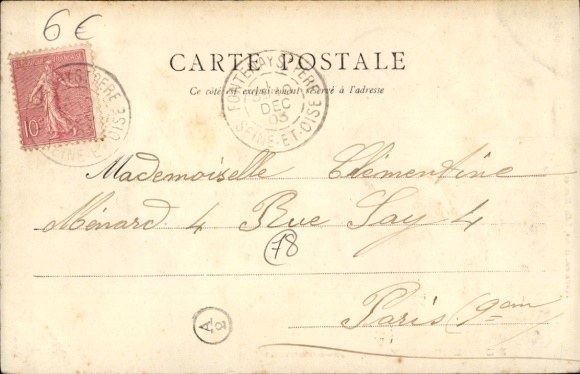 6€
CARTE POSTALE
Ce côté est exclusivement réservé à l'adresse
10c
FONTENAY-S-PÈRE
DEC
03
SEINE-ET-OISE
Mademoiselle Clémentine
Ménard 4 Rue Say 4
78
Paris 9em
A
2